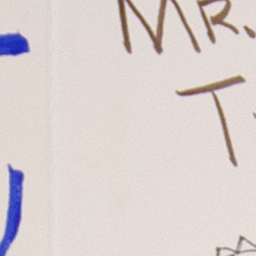 MR.
T.